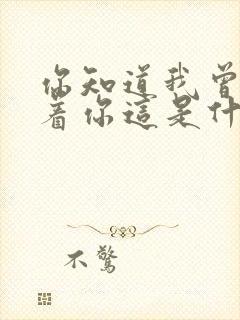 你知道我曾
着你這是什
不驚